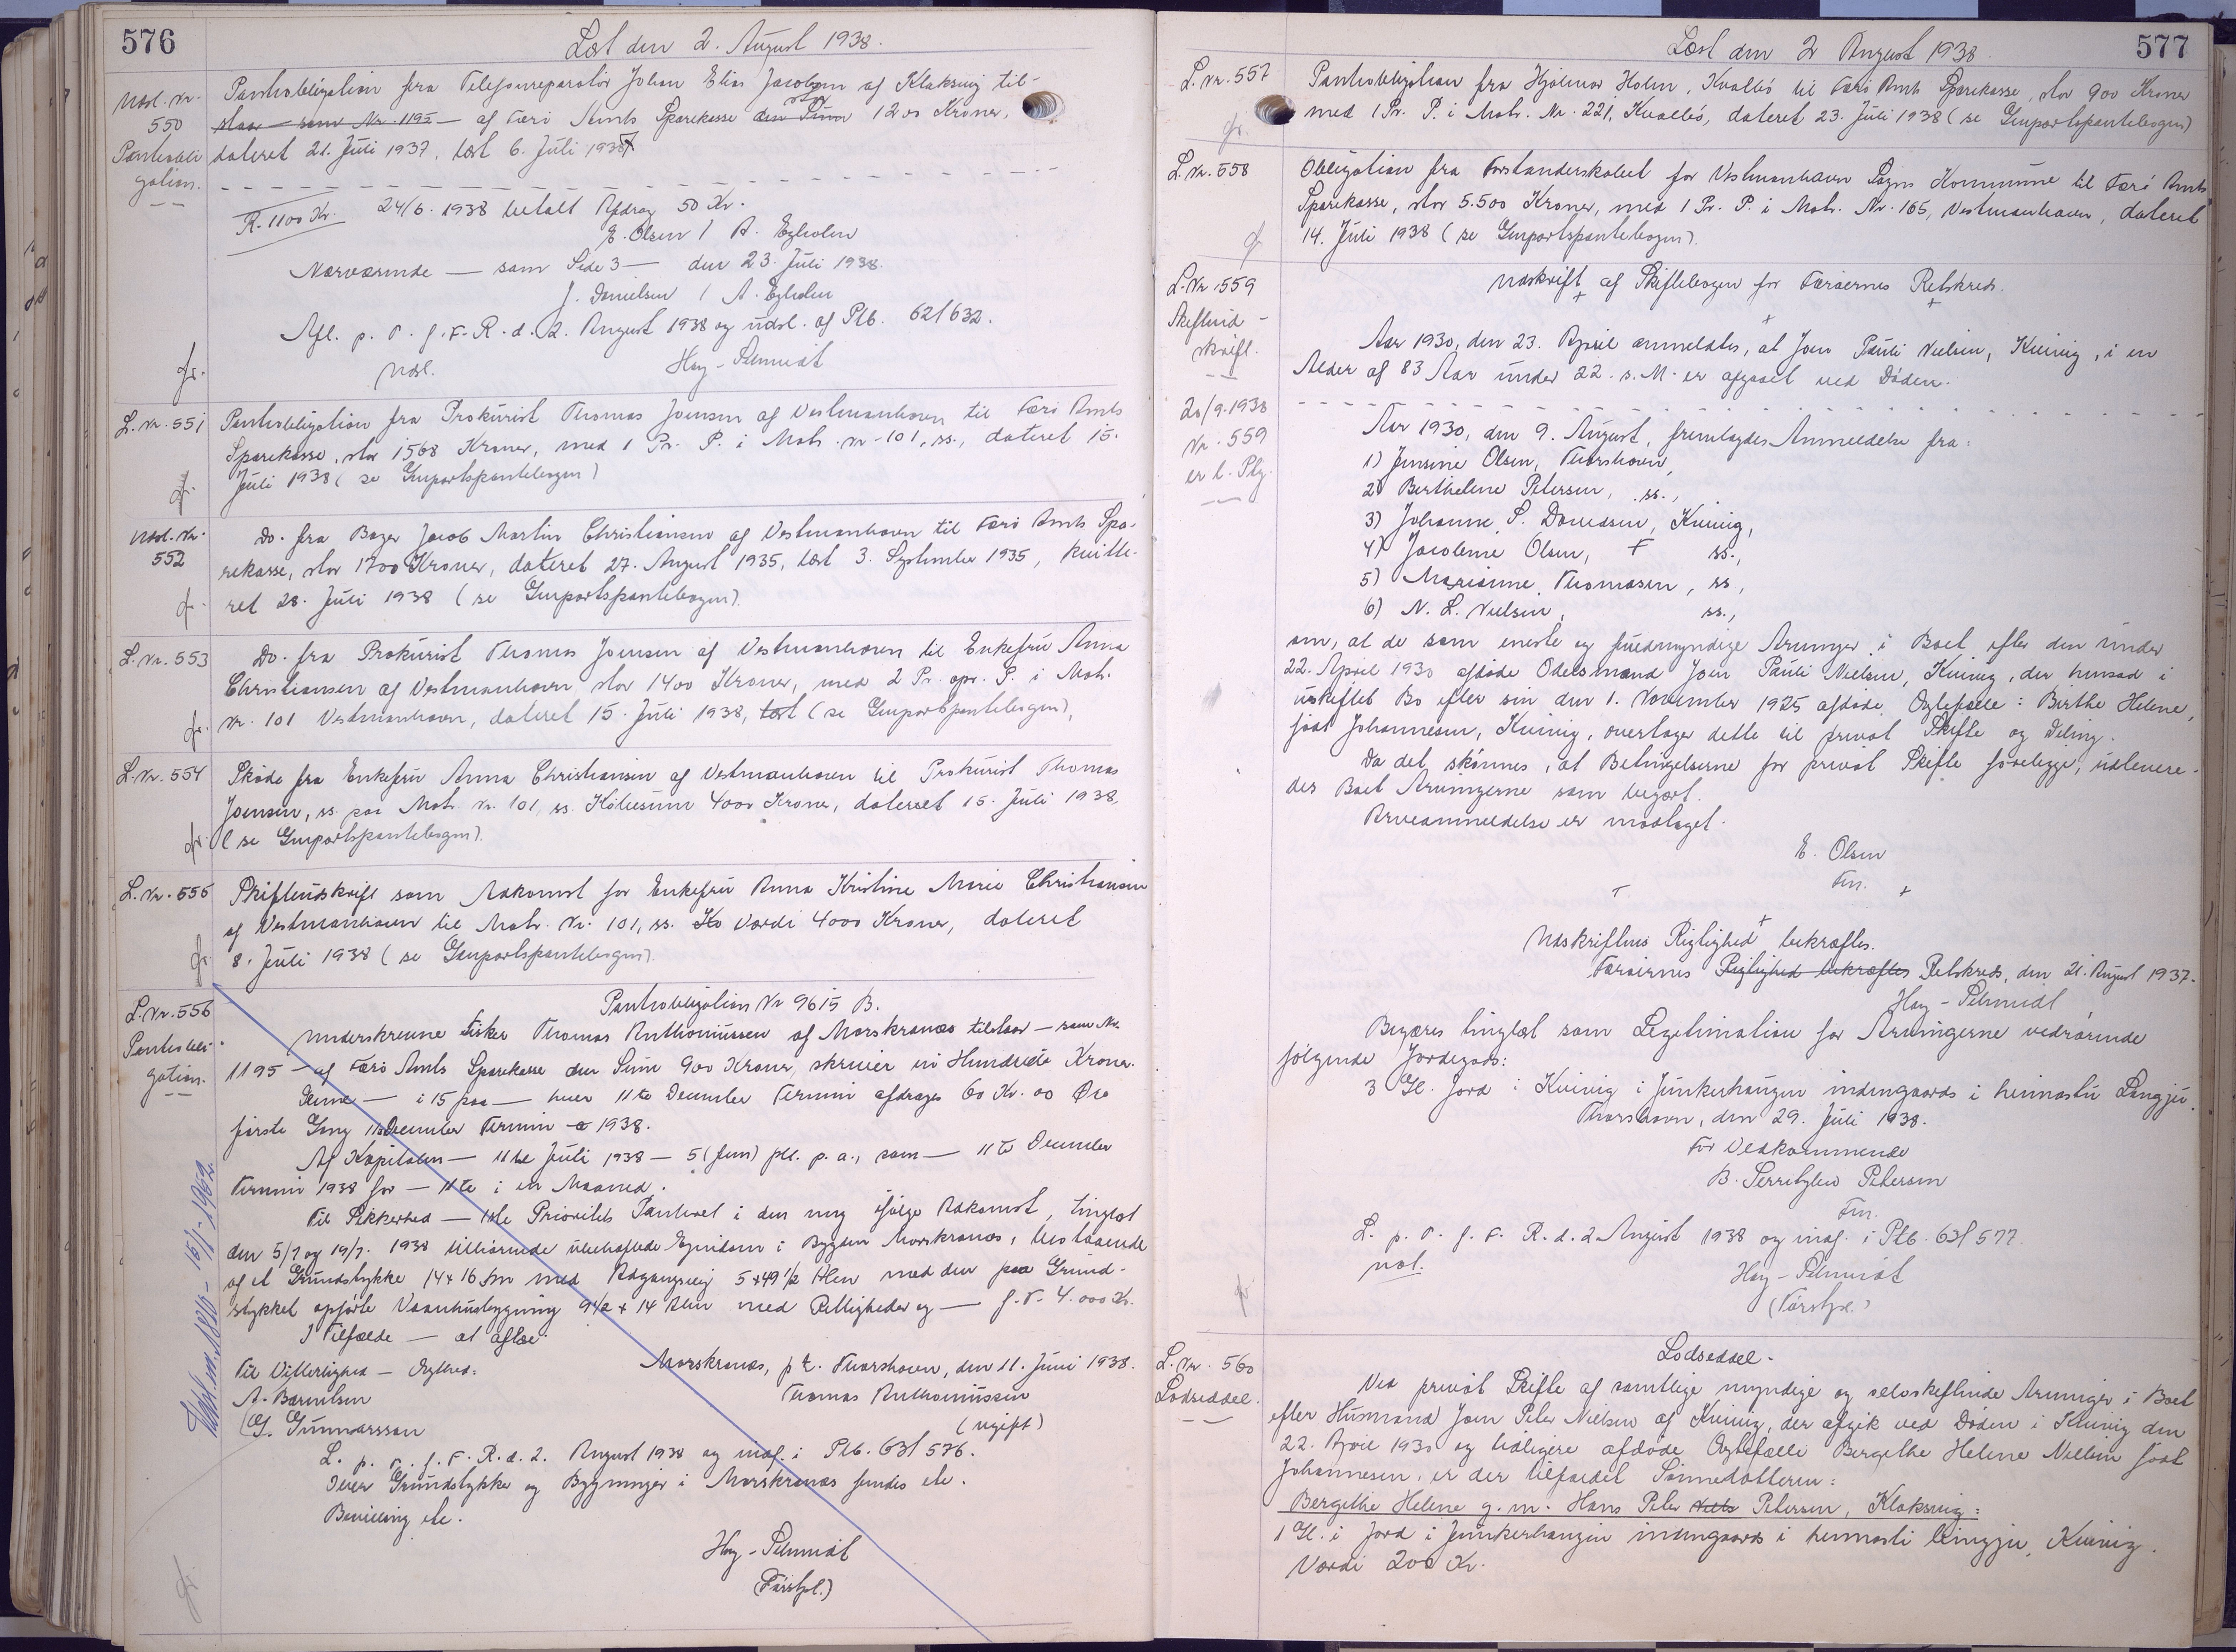 576
Læst den 2. August 1938.
Udsl. Nr. 550 Pantobligation.
Pantobligation fra Telefonreparatör Johan Elias Jacobsen af Klaksvig til-
staar – som Nr. 1195 – af Færö Amts Sparekasse den Sum stor 1200 Kroner,
dateret 21. Juli 1937, læst 6. Juli 1937
R. 1100 Kr. 24/6. 1938 betalt Afdrag 50 Kr.
E. Olsen / A. Egholm
Nærværende — som Side 3 — den 23. Juli 1938.
J. Danielsen / A. Egholm
Afl. p. T. f. F. R. d. 2. August 1938 og udsl. af Ptb. 62/632.
Udsl. Hay-Schmidt
L. Nr. 551
Pantobligation fra Prokurist Thomas Joensen af Vestmanhavn til Færö Amts
Sparekasse, stor 1568 Kroner, med 1 Pr. P. i Matr. Nr. 101, ss., dateret 15.
Juli 1938 (se Genpartspantebogen)
Udsl. Nr. 552
Do. fra Bager Jacob Martin Christiansen af Vestmanhavn til Færö Amts Spa-
rekasse, stor 1700 Kroner, dateret 27. August 1935, læst 3. September 1935, kvitte-
ret 28. Juli 1938 (se Genpartspantebogen).
L. Nr. 553
Do. fra Prokurist Thomas Joensen af Vestmanhavn til Enkefru Anna
Christiansen af Vestmanhavn stor 1400 Kroner, med 2 Pr. opr. P. i Matr.
Nr. 101 Vestmanhavn, dateret 15. Juli 1938, læst (se Genpartspantebogen),
L. Nr. 554
Sköde fra Enkefru Anna Christiansen af Vestmanhavn til Prokurist Thomas
Joensen, ss. paa Matr. Nr. 101, ss. Köbesum 4000 Kroner, dateret 15. Juli 1938,
(se Genpartspantebogen).
L. Nr. 555
Skifteudskrift som Adkomst for Enkefru Anna Kristine Marie Christiansen
af Vestmanhavn til Matr. Nr. 101, ss. Kö Værdi 4000 Kroner, dateret
8. Juli 1938 (se Genpartspantebogen).
L. Nr. 556 Pantobligation.
Pantobligation Nr 9615 B.
Underskrevne Fisker Thomas Anthoniussen af Morskranæs tilstaar – som Nr.
1195 – af Færö Amts Sparekasse den Sum 900 Kroner, skriver ni Hundrede Kroner.
Denne — i 15 paa — hver 11te December Termin afdrages 60 Kr. 00 Öre
förste Gang 11. December Termin 1938.
Af Kapitalen — 11te Juli 1938 — 5 (fem) pCt. p. a., som — 11te December
Termin 1938 for — 11te i en Maaned.
Til Sikkerhed — 1ste Prioritets Panteret i den mig ifölge Adkomst, tinglæst
den 5/7 og 19/7. 1938 tilhörende ubehæftede Ejendom i Bygden Morskranæs, bestaaende
af et Grundstykke 14 x 16 fm med Adgangsvej 5 x 49 1/2 Alen med den paa Grund-
stykket opförte Vaanhusbygning 9 1/2 x 14 Alen med Rettigheder og — f. V. 4.000 Kr.
I Tilfælde — at aflæ.
Til Vitterlighed — Ægthed: Morskranæs, p.t. Thorshavn, den 11. Juni 1938.
A. Bærentsen Thomas Anthoniussen
G. Gunnarsson (ugift)
L. p. T. f. F. R. d. 2. August 1938 og indf. i Ptb. 63/576.
Over Grundstykke og Bygninger i Morskranæs fundes etc.
Bevilling etc.
Hay-Schmidt
(Fürstpl.)
577
Læst den 2 August 1938.
L. Nr. 557
Pantobligation fra Hjalmar Holm, Kvalbö til Færö Amts Sparekasse, stor 900 Kroner
med 1 Pr. P. i Matr. Nr. 221, Kvalbö, dateret 23. Juli 1938 (se Genpartspantebogen)
L. Nr. 558
Obligation fra Forstanderskabet for Vestmanhavn Sogns Kommune til Færö Amts
Sparekasse, stor 5.500 Kroner, med 1 Pr. P. i Matr. Nr. 165, Vestmanhavn, dateret
14. Juli 1938 (se Genpartspantebogen).
L. Nr. 559 Skifteudskrift.
Udskrift af Skiftebogen for Færöernes Retskreds.
Aar 1930, den 23. April anmeldtes, at Joen Pauli Nielsen, Kvivig, i en
Alder af 83 Aar under 22. s. M. er afgaaet ved Döden.
20/9.1938 Nr. 559 er l. Ptg.
Aar 1930, den 9. August, fremlagdes Anmeldelse fra:
1) Jensine Olsen, Thorshavn,
2) Berthelene Petersen, ss.,
3) Johanne S. Davidsen, Kvivig,
4) Jacobine Olsen, ss.,
5) Marianne Thomasen, ss.,
6) N. L. Nielsen, ss.,
om, at de som eneste og fuldmyndige Arvinger i Boet efter den under
22. April 1930 afdöde Odelsmand Joen Pauli Nielsen, Kvivig, der hensad i
uskiftet Bo efter sin den 1. November 1925 afdöde Ægtefælle: Birthe Helene,
födt Johannesen, Kvivig, overtager dette til privat Skifte og Deling.
Da det skönnes, at Betingelserne for privat Skifte foreligge, udlevere-
des Boet Arvingerne som begært.
Arveanmeldelse er modtaget.
E. Olsen
Fm.
Udskriftens Rigtighed bekræftes.
Færöernes Rigtighed bekræftes Retskreds, den 21. August 1937.
Hay-Schmidt
Begæres tinglæst som Legitimation for Arvingerne vedrörende
fölgende Jordegods:
3 Gl. Jord i Kvivig i Junkerhaugen indengaards i heimastu Langju.
Thorshavn, den 29. Juli 1938.
For Vedkommende
B. Serritzlew Petersen
Fm.
L. p. T. f. F. R. d. 2. August 1938 og indf. i Ptb. 63/577.
Hay-Schmidt
(Fürstpl.)
L. Nr. 560 Lodseddel.
Lodseddel.
Ved privat Skifte af samtlige myndige og selvskiftende Arvinger i Boet
efter Husmand Joen Peter Nielsen af Kvivig, der afgik ved Döden i Kvivig den
22. April 1930 og tidligere afdöde Ægtefælle Bergithe Helene Nielsen födt
Johannesen, er der tilfaldet Sönnedatteren:
Bergithe Helene g. m. Hans Peter Niels Petersen, Klaksvig:
1 Gl. i Jord i Junkerhaugin indengaards i heimasti lingju, Kvivig.
Værdi 200 Kr.